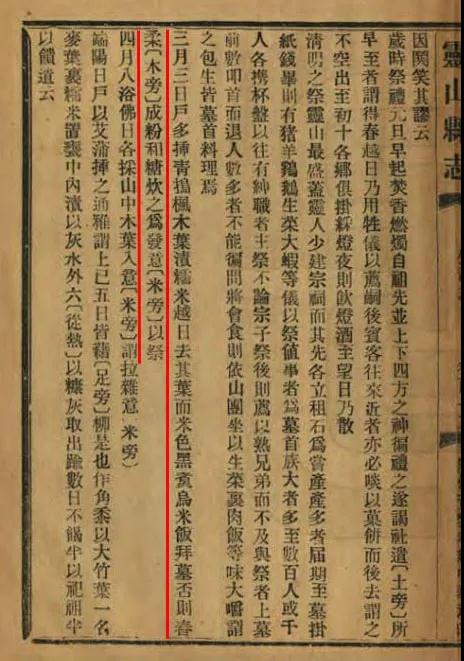 靈山縣志
因鬨笑其謬云
歲時祭禮元旦早起焚香燃燭自祖先並上下四方之神徧禮之遂謁社遺〔土旁〕所
早至者謂得春越日乃用牲儀以薦嗣後賓客往來近者亦必啖以菓餅而後去謂之
不空出至初十各鄉俱掛綵燈夜則飲燈酒至望日乃散
清明之祭靈山最盛蓋靈人少建宗祠而其先各立租石爲嘗產產多者屆期至墓掛
紙錢畢則有猪羊鷄鵝生菜大蝦等儀以祭値事者爲墓首族大者多至數百人或千
人各携杯盤以往有紳職者主祭不論宗子祭後則薦以熟兄弟而不及與祭者上墓
前數叩首而退人數多者不能徧問將會食則依山團坐以生菜裹肉飯等味大嚼謂
之包生皆墓首料理焉
三月三日戶多揷靑搗楓木葉漬糯米越日去其葉而米色黑炊烏米飯拜墓否則舂
柔〔木旁〕成粉和糖炊之爲發意〔米旁〕以祭
四月八浴佛日各採山中木葉入意〔米旁〕謂拉雜意〔米旁〕
端陽日戶以艾蒲揷之通雅謂上已五日皆藉〔足旁〕柳是也作角黍以大竹葉一名
麥葉裹糯米置甕中內漬以灰水外六〔從熱〕以糠灰取出踰數日不餲半以祀祖半
以饋遺云